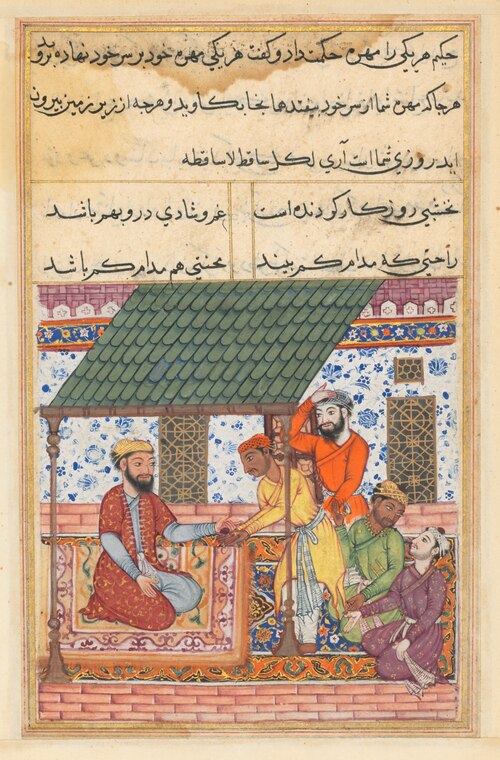 حکیم هر یکی را مهره حکمت داد و کفت هر یکی مهره خود بر سر خود نهاده بروید
هر جا که مهره شما از سر خود بیفتد هما بخا بکاوید و هرچه از زیر زمین بیرون
اید روزی شما است آری لکل ساقط لاساقطه
نخشبی روزکار کردنده است غم و شادی درو بهم باشد
راحتی که مدام کم بیند محنتی هم مدام کم باشد